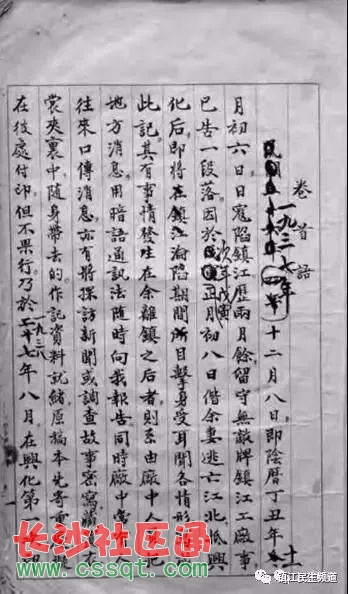 卷首語
一九三七年十二月八日。即陰曆丁丑年十一
月初六日日寇陷鎮江。歷兩月餘。留守無敵牌鎮江工廠事
已告一段落。因於次年戊寅正月初八日偕余妻逃亡江北。抵興
化后。即將在鎮江淪陷期間所目擊身受耳聞各情形
此記。其有事情發生在余離鎮之后者。則系由廠中人
地方消息。用暗語通訊法隨時向我報告。同時廠中
往來口傳消息。亦有將採訪新聞或調查故事密寫藏在
裳夾裏中。隨身帶去的。作記資料就緒。原稿本先寄
在彼處付印。但不果行。乃於一九三八年八月。在興化第
长沙社区通
www.cssqt.com
镇江民生频道